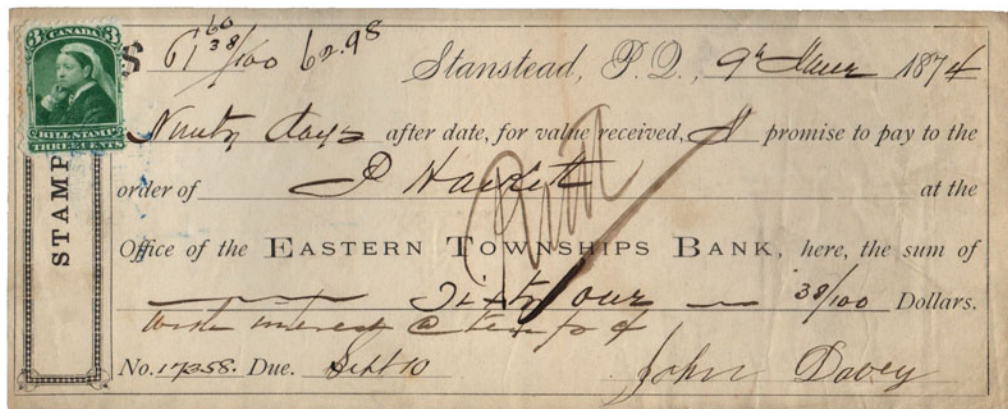 3 CANADA 3
BILL STAMP
THREE CENTS
STAMP
$ 61 38/100 60 62.98
Stanstead, P. Q., 9th June 1874
Ninety days after date, for value received, I promise to pay to the
order of P Hackett at the
Office of the EASTERN TOWNSHIPS BANK, here, the sum of
Sixty One 38/100 Dollars.
with interest @ ten
No. 17358. Due. Sept 10
John Davey